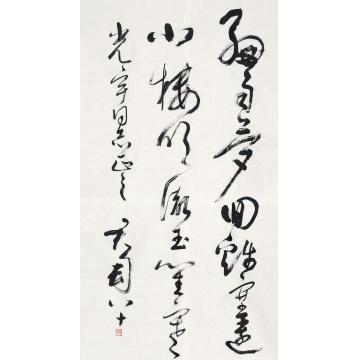 細雨夢回雞塞遠
小樓吹徹玉笙寒
光宇同志正之 君匋八十